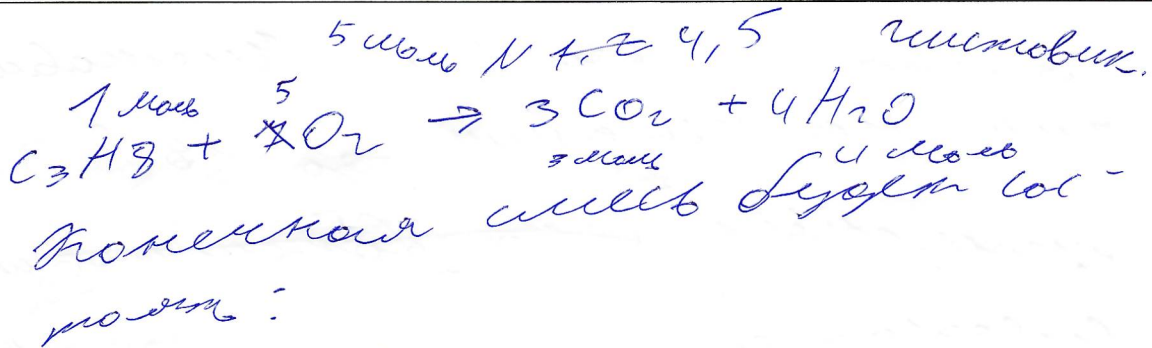 5 моль N 4,5 чистовик.
1 моль 5
C3H8 + O2 → 3CO2 + 4H2O
3 моль 4 моль
Конечная смесь будет сос-
тоять: